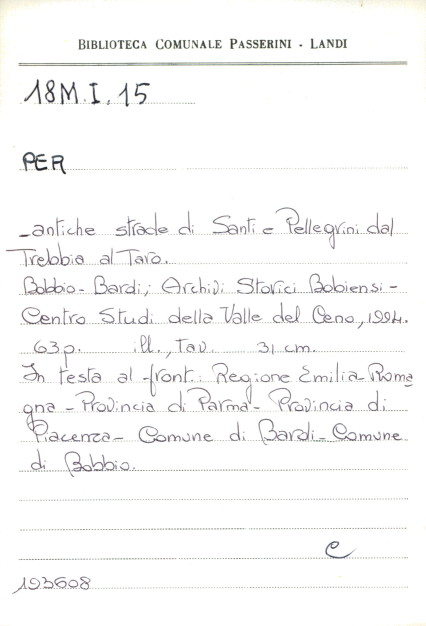 BIBLIOTECA COMUNALE PASSERINI - LANDI
18M.I.15
PER
-antiche strade di Santi e Pellegrini dal
Trebbia al Taro.
Bobbio-Bardi, Archivi Storici Bobiensi-
Centro Studi della Valle del Ceno, 1994.
63 p. ill., tav. 31 cm.
In testa al front.: Regione Emilia-Roma
gna - Provincia di Parma - Provincia di
Piacenza - Comune di Bardi - Comune
di Bobbio.
e
193608